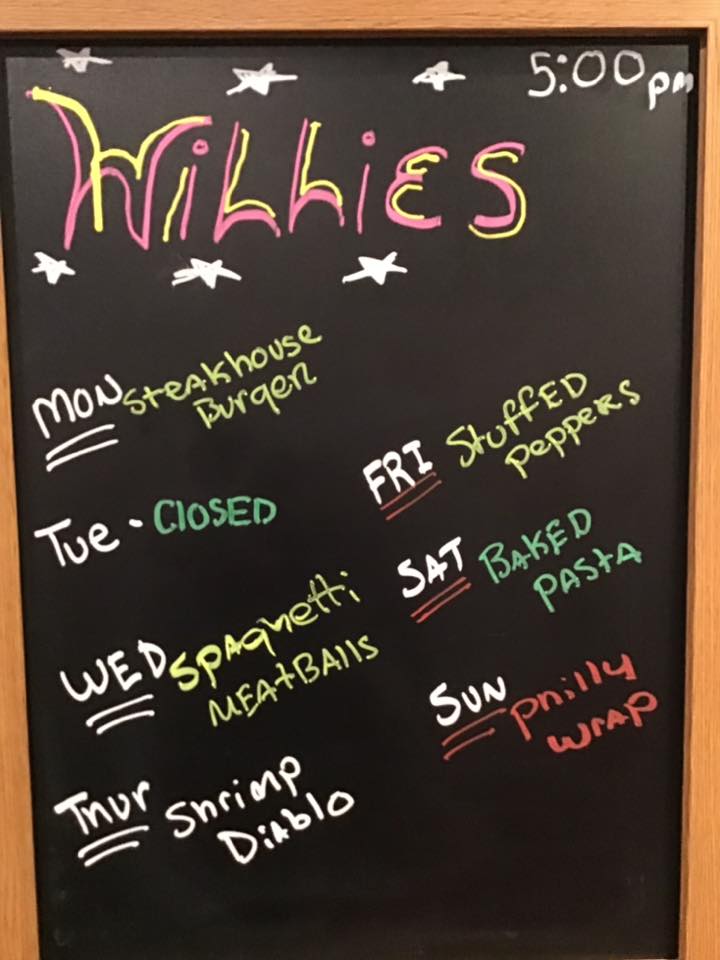 5:00 pm
WiLLiES
MON Steakhouse
Burger
Tue - CLOSED
WED Spaghetti
MEAtBAlls
Thur Shrimp
DiAblo
FRI StuffED
Peppers
SAT BAKED
PAStA
SUN philly
WRAP